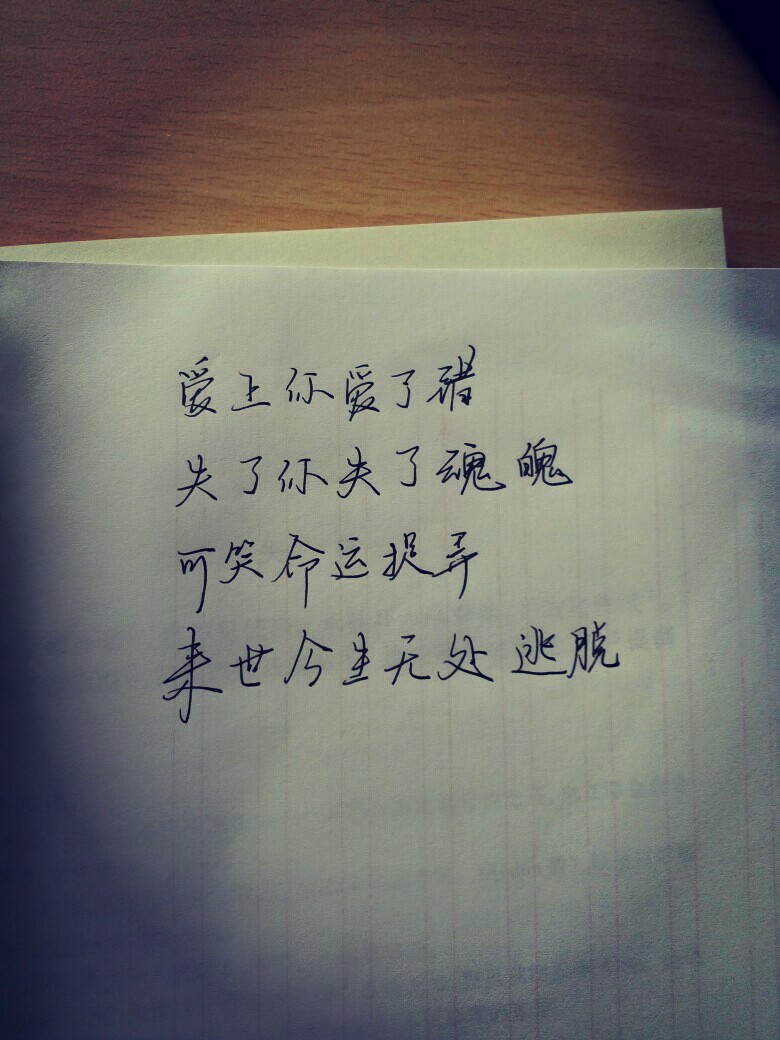 爱上你爱了错
失了你失了魂魄
可笑命运捉弄
来世今生无处逃脱